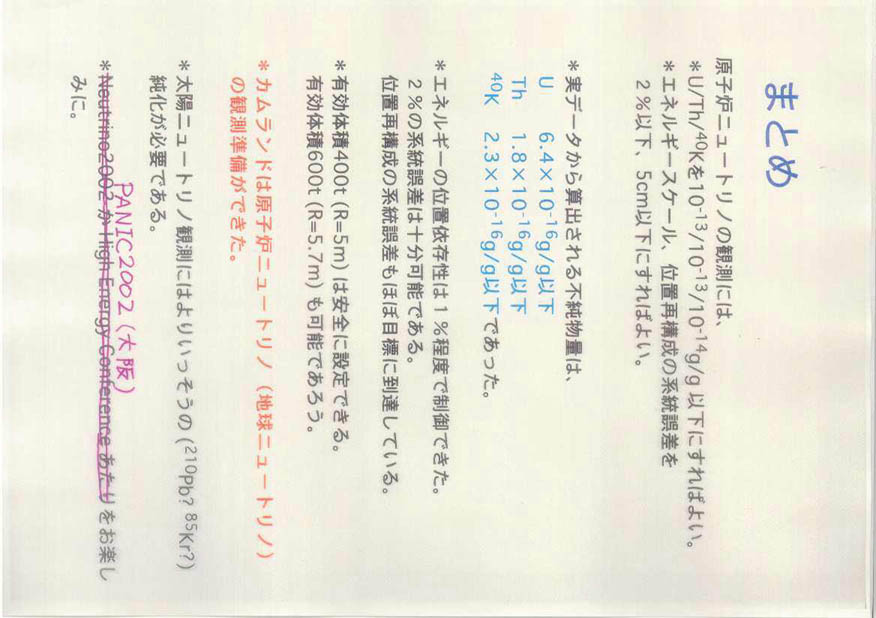 まとめ
原子炉ニュートリノの観測には、
*U/Th/⁴⁰Kを10⁻¹³/10⁻¹³/10⁻¹⁴g/g 以下にすればよい。
*エネルギースケール、位置再構成の系統誤差を
2%以下、5cm以下にすればよい。
*実データから算出される不純物量は、
U 6.4×10⁻¹⁶g/g以下
Th 1.8×10⁻¹⁶g/g以下
⁴⁰K 2.3×10⁻¹⁶g/g以下であった。
*エネルギーの位置依存性は1%程度で制御できた。
2%の系統誤差は十分可能である。
位置再構成の系統誤差もほぼ目標に到達している。
*有効体積400t (R=5m) は安全に設定できる。
有効体積600t (R=5.7m) も可能であろう。
*カムランドは原子炉ニュートリノ (地球ニュートリノ)
の観測準備ができた。
*太陽ニュートリノ観測にはよりいっそうの (²¹⁰Pb? ⁸⁵Kr?)
純化が必要である。
PANIC2002 (大阪)
*Neutrino2002か High Energy Conference あたりをお楽し
みに。